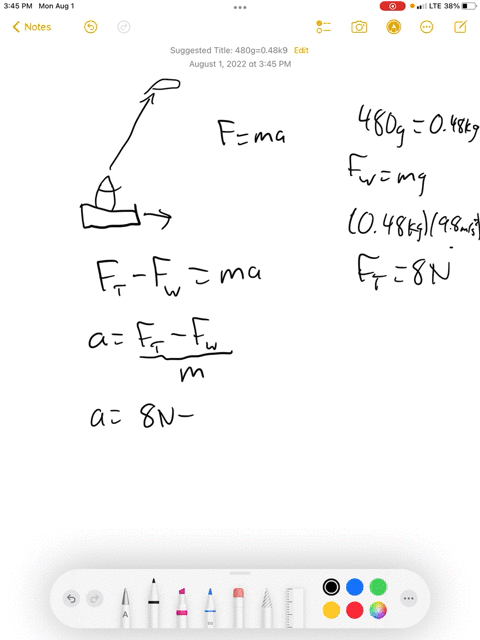 3:45 PM Mon Aug 1
LTE 38%
Notes
Suggested Title: 480g=0.48k9 Edit
August 1, 2022 at 3:45 PM
F=ma
480g=0.48kg
Fw=mg
(0.48kg)(9.8m/s²)
FT=8N
FT-Fw=ma
a=FT-Fw
m
a= 8N-